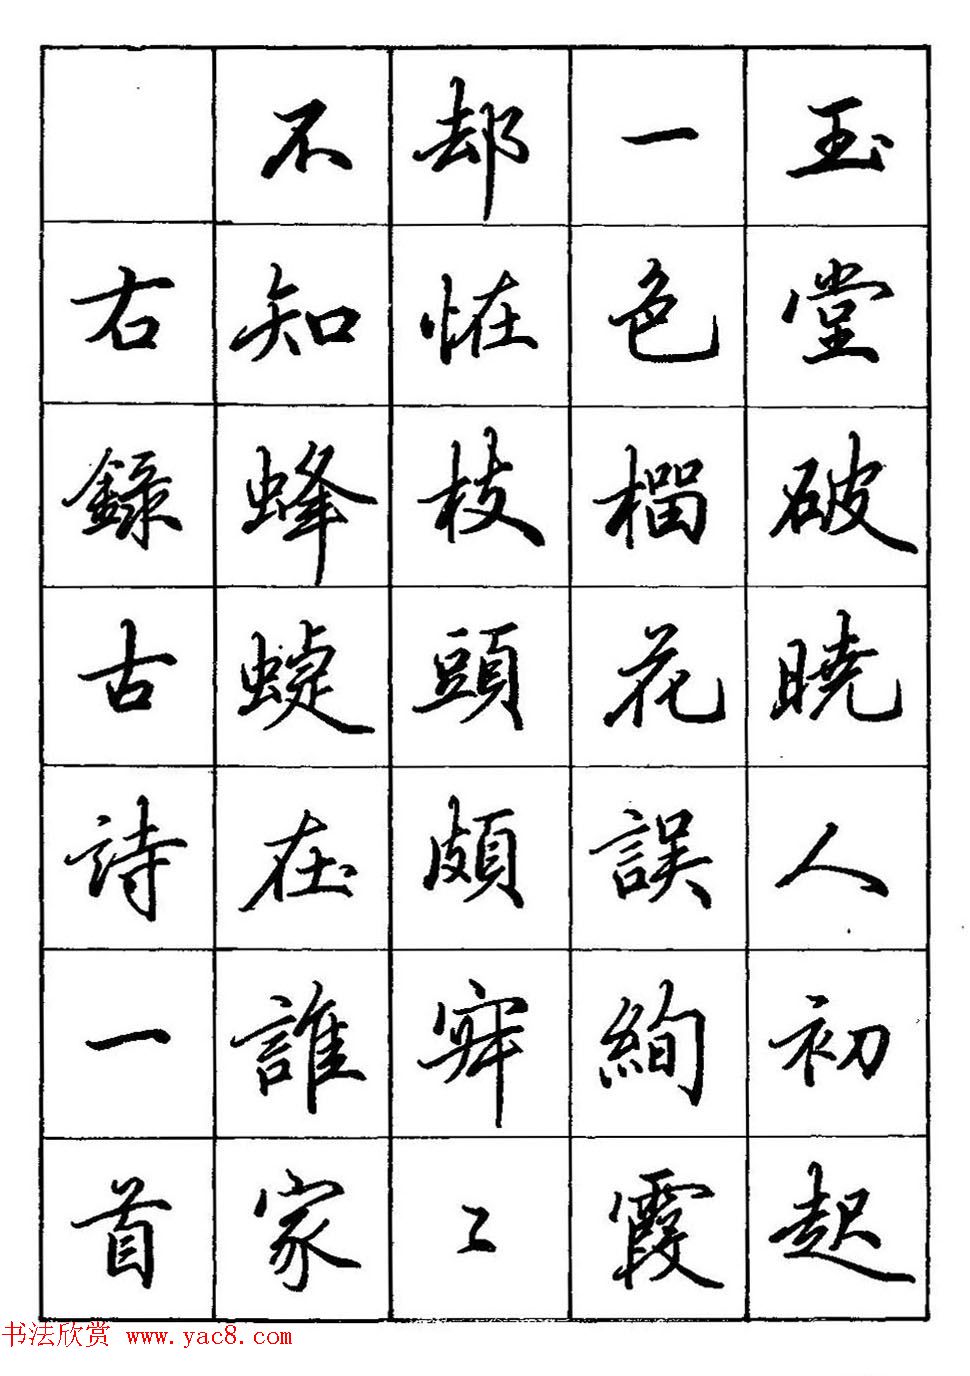 玉堂破曉人初起
一色榴花誤絢霞
却恠枝頭頗寂〻
不知蜂蜨在誰家
右錄古詩一首
书法欣赏 www.yac8.com